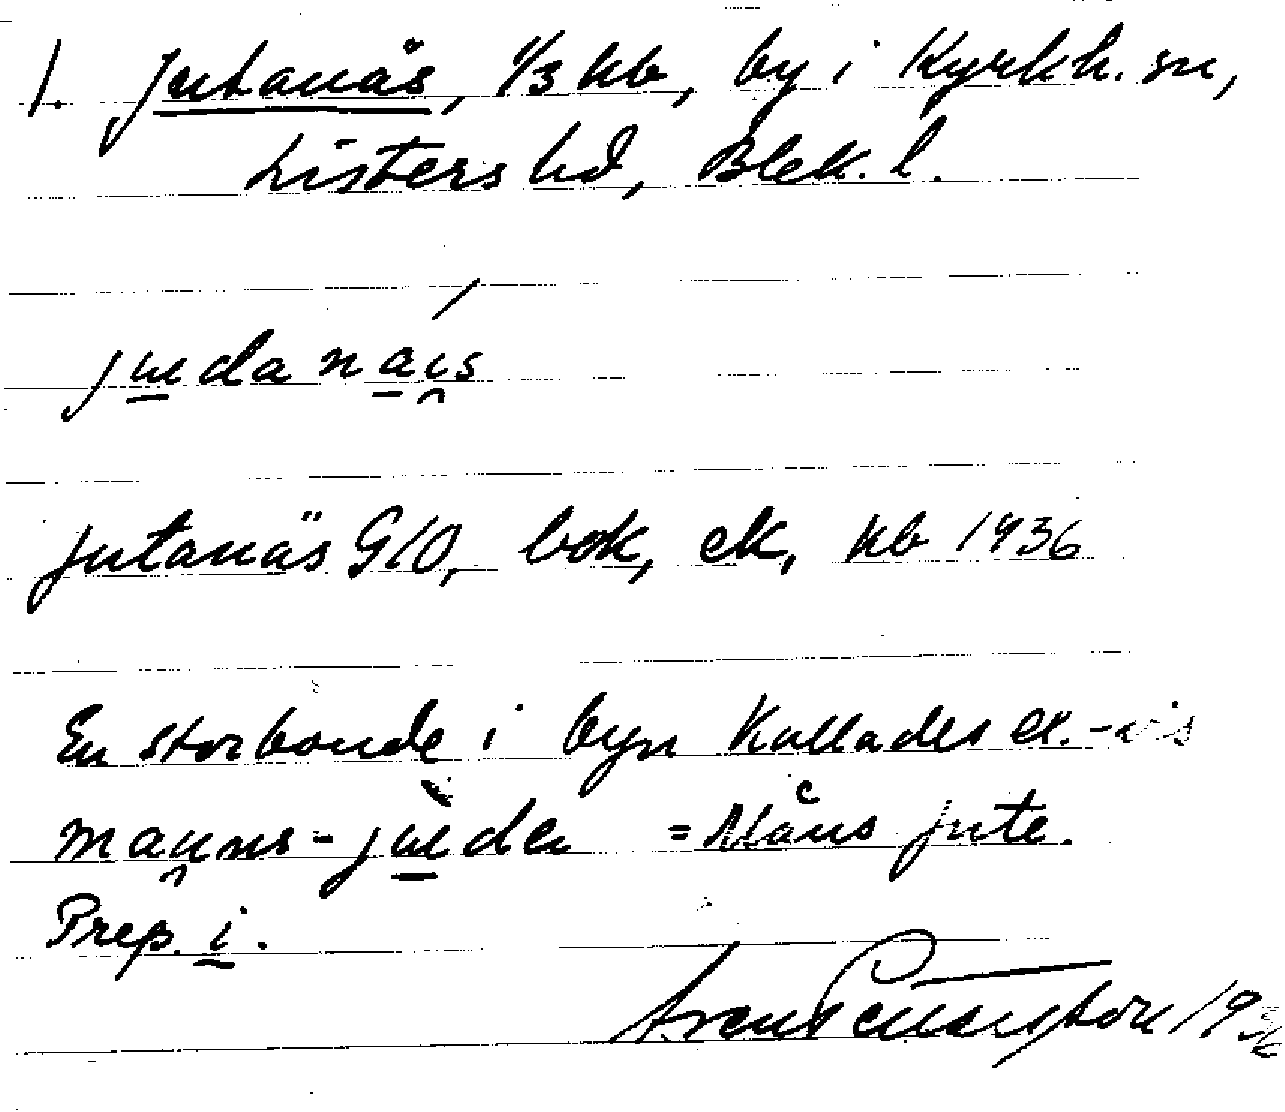 1. Jutanäs, 1/3 kb, by i Kyrkh. sn,
Listers hd, Blek. l.
juedanais
Jutanäs G10, bok, ek, kb 1936
En storbonde i byn kallades
mauns-jueden = Måns jute.
Prep. i.
1936